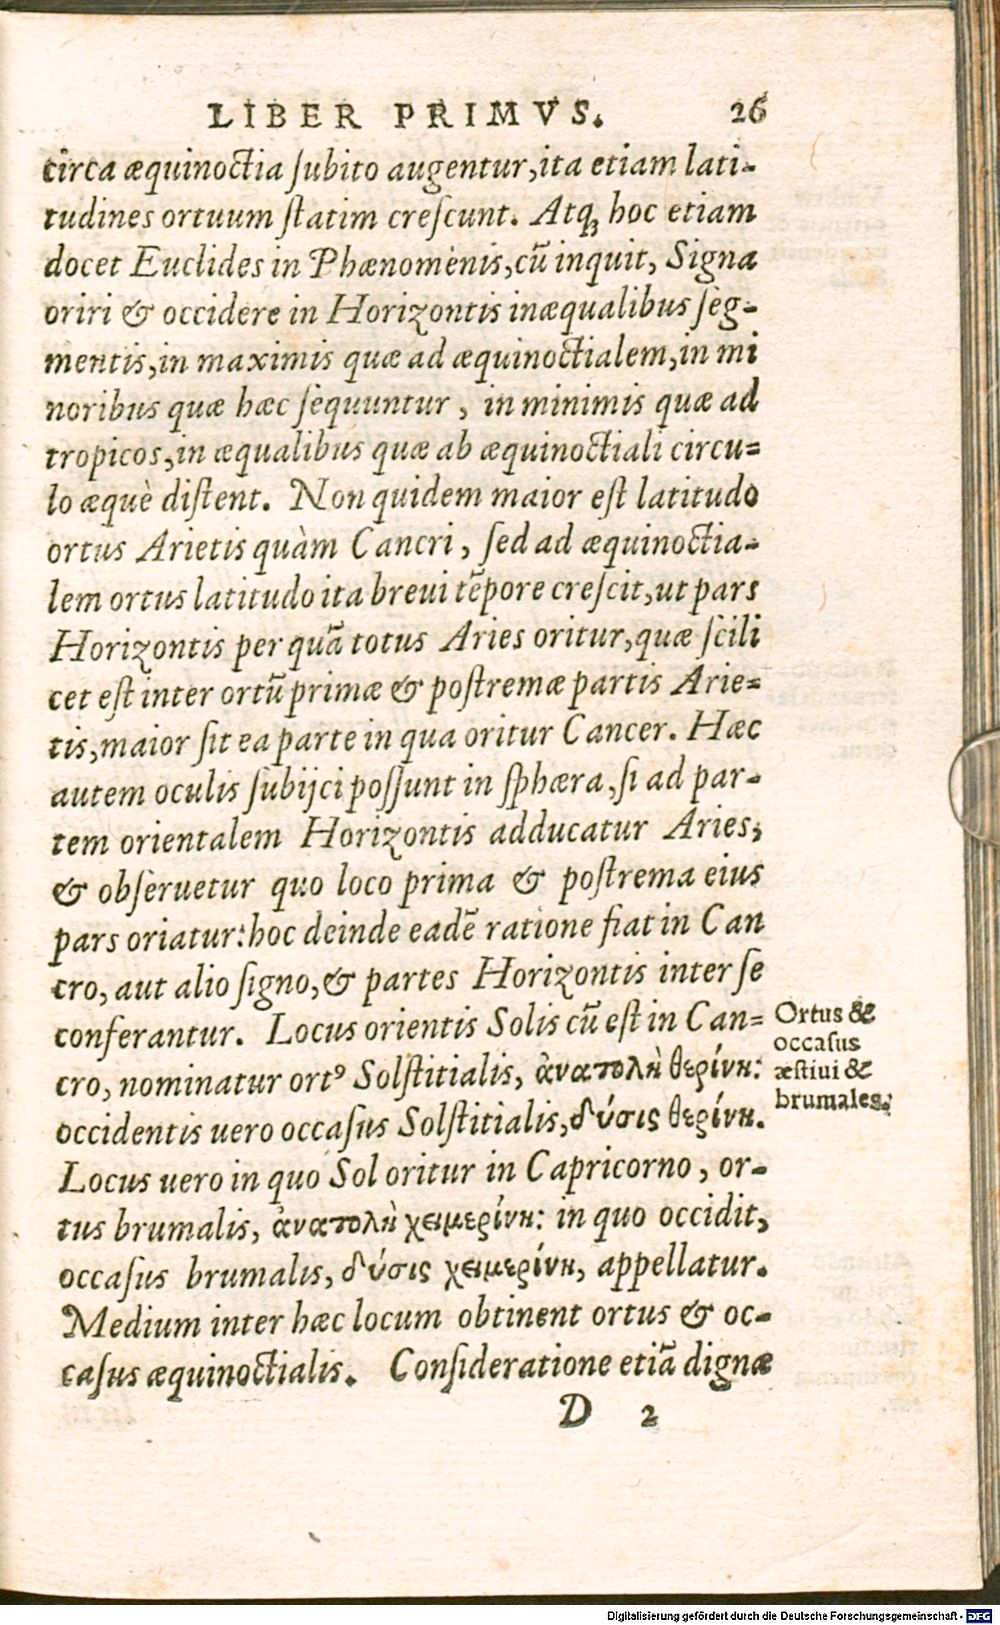 LIBER PRIMVS. 26
circa æquinoctia ſubito augentur, ita etiam lati-
tudines ortuum ſtatim creſcunt. Atq; hoc etiam
docet Euclides in Phænomenis, cū inquit, Signa
oriri & occidere in Horizontis inæqualibus ſeg-
mentis, in maximis quæ ad æquinoctialem, in mi
noribus quæ hæc ſequuntur, in minimis quæ ad
tropicos, in æqualibus quæ ab æquinoctiali circu-
lo æquè diſtent. Non quidem maior eſt latitudo
ortus Arietis quàm Cancri, ſed ad æquinoctia-
lem ortus latitudo ita breui tēpore creſcit, ut pars
Horizontis per quā totus Aries oritur, quæ ſcili
cet eſt inter ortū primæ & poſtremæ partis Arie-
tis, maior ſit ea parte in qua oritur Cancer. Hæc
autem oculis ſubijci poſſunt in ſphæra, ſi ad par-
tem orientalem Horizontis adducatur Aries;
& obſeruetur quo loco prima & poſtrema eius
pars oriatur: hoc deinde eadē ratione fiat in Can
cro, aut alio ſigno, & partes Horizontis inter ſe
conferantur. Locus orientis Solis cū eſt in Can-
cro, nominatur ortꝰ Solſtitialis, ἀνατολὴ θερίνη:
occidentis uero occaſus Solſtitialis, δύσις θερίνη.
Locus uero in quo Sol oritur in Capricorno, or-
tus brumalis, ἀνατολὴ χειμερίνη: in quo occidit,
occaſus brumalis, δύσις χειμερίνη, appellatur.
Medium inter hæc locum obtinent ortus & oc-
caſus æquinoctialis. Conſideratione etiā dignæ
D 2
Ortus &
occaſus
æſtiui &
brumales.
Digitalisierung gefördert durch die Deutsche Forschungsgemeinschaft - DFG